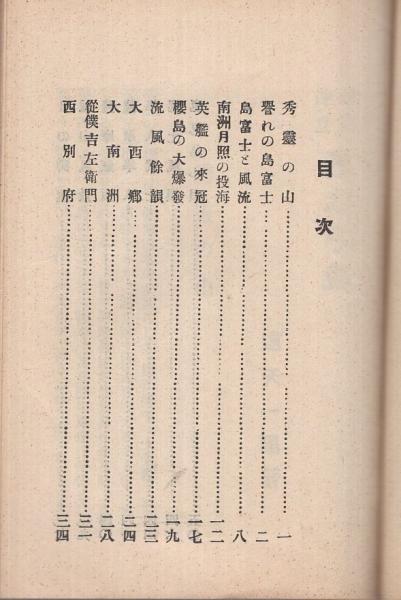 目次
秀靈の山……一
譽れの島富士……二
島富士と風流……八
南洲月照の投海……一二
英艦の來冠……一七
櫻島の大爆發……一九
流風餘韻……二三
大西郷……二四
大南洲……二八
從僕吉左衞門……三一
西別府……三四